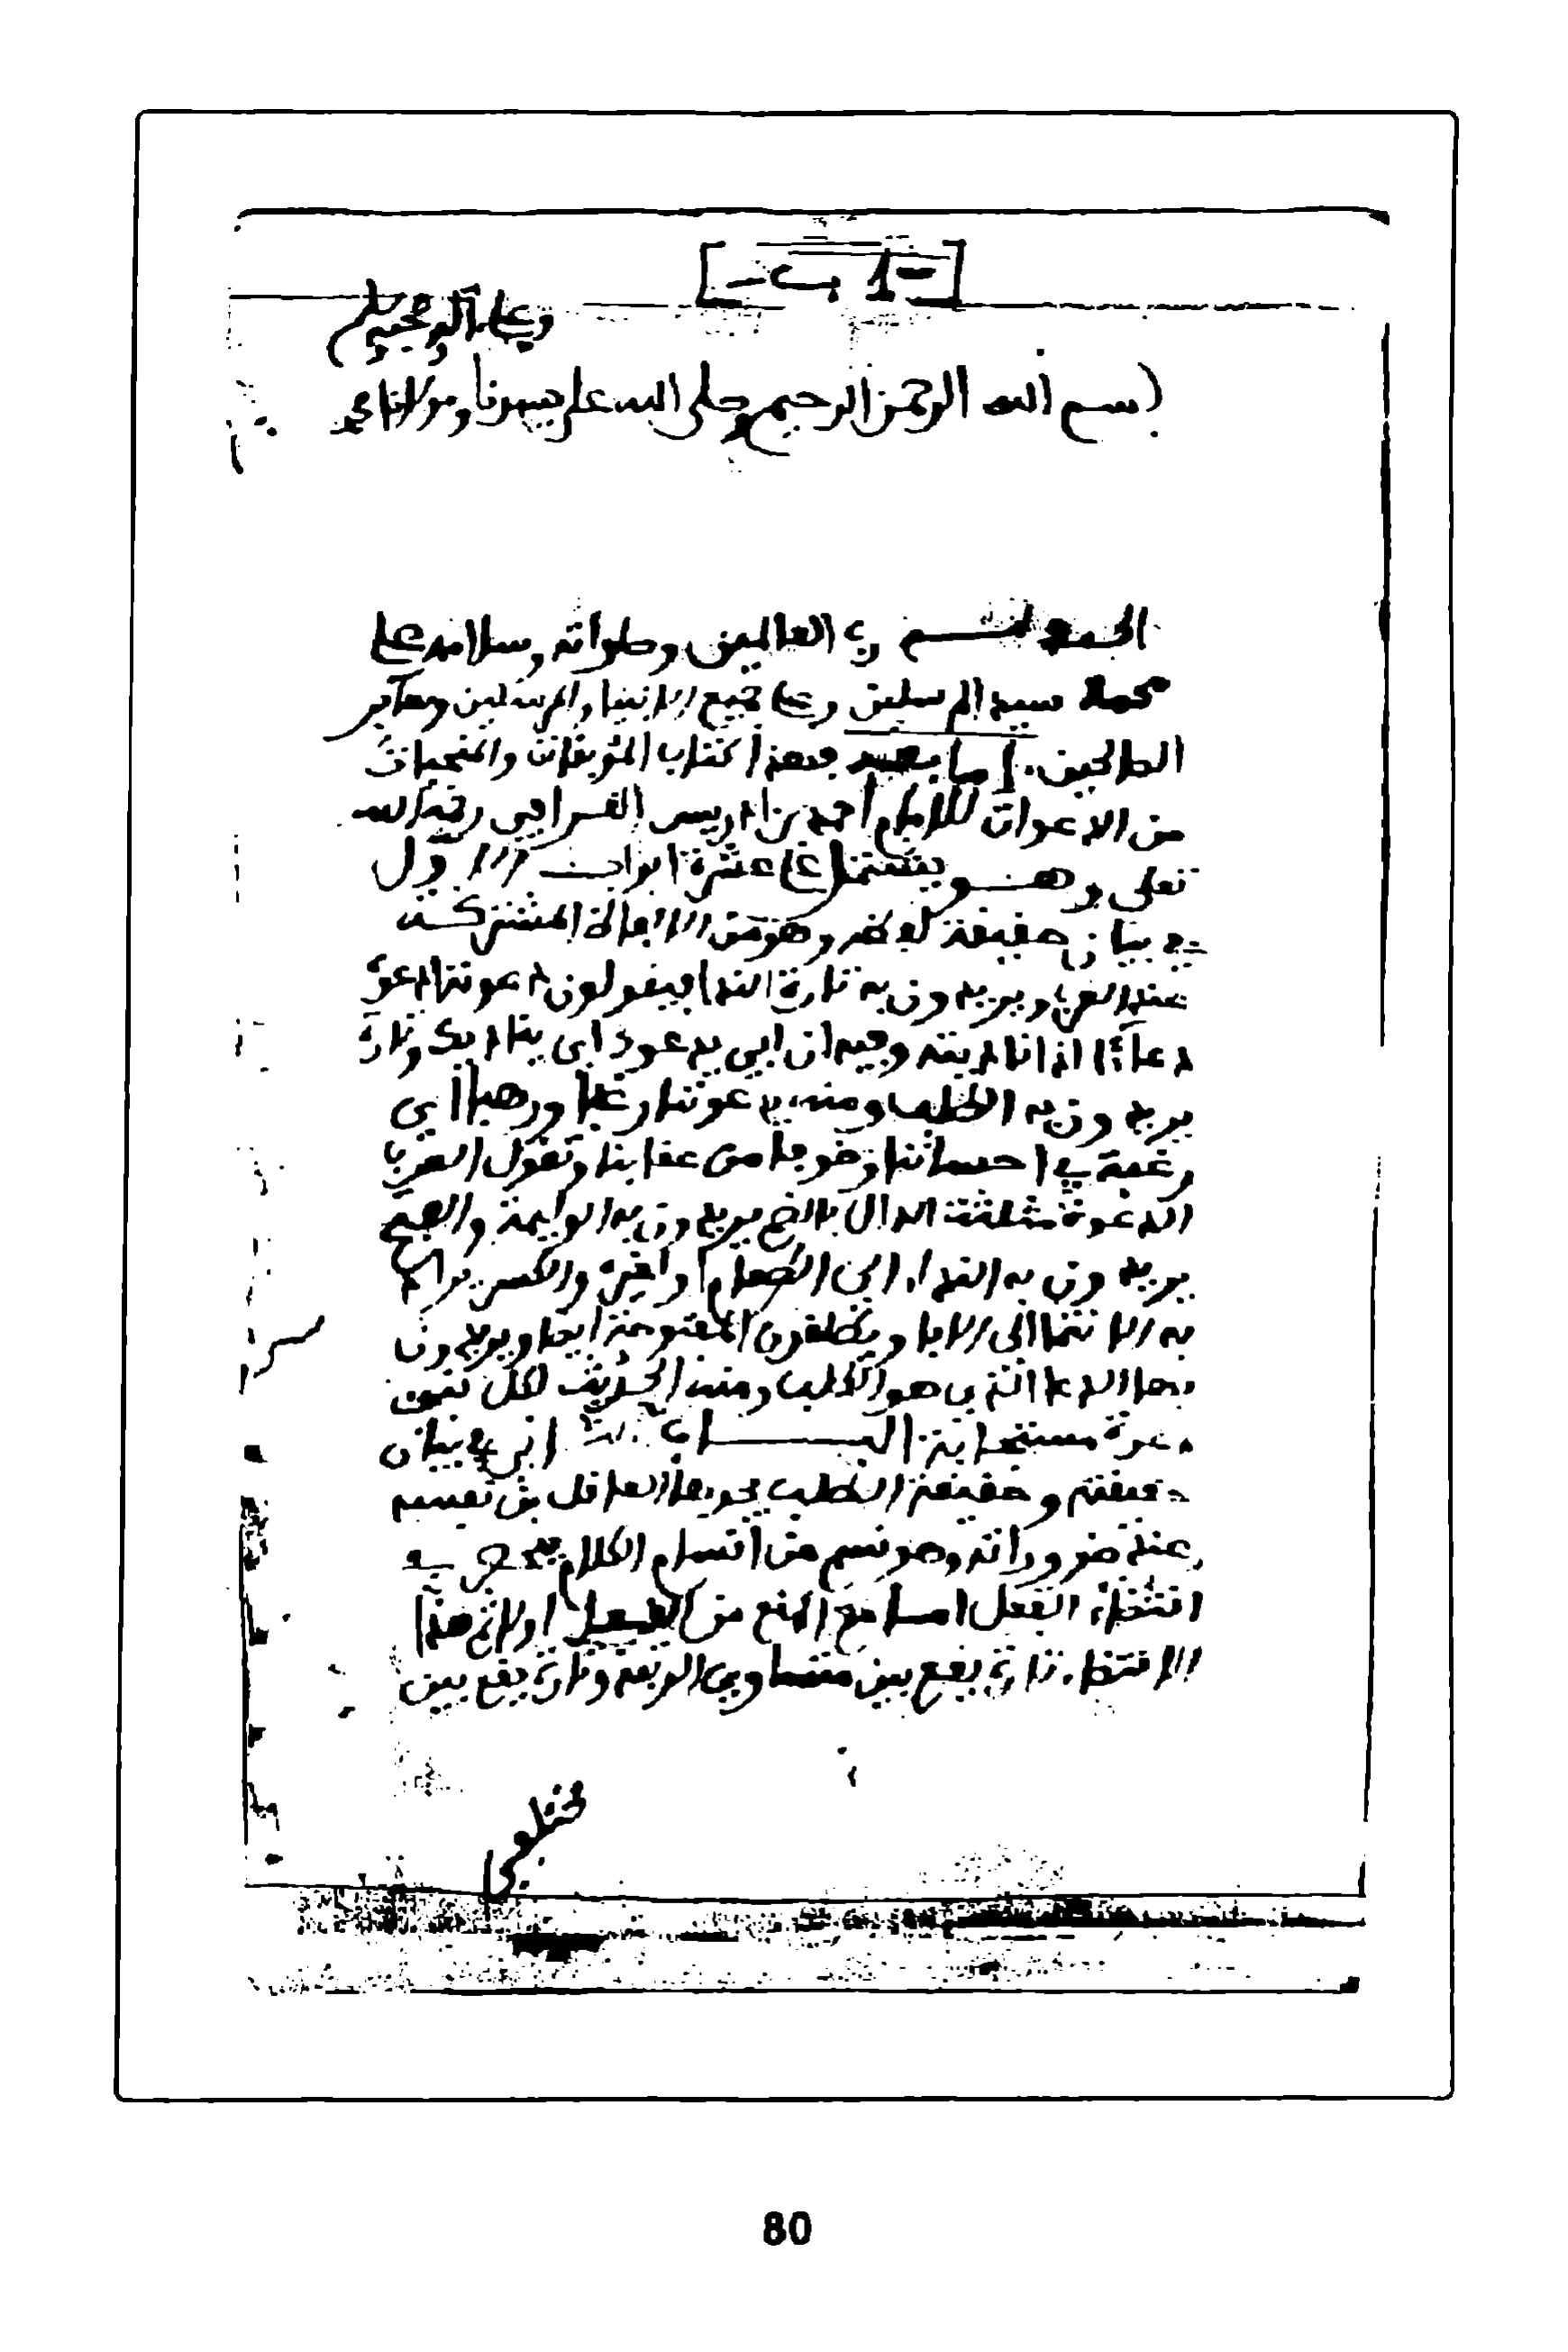 [-1 ب-]
وعلى آله وصحبه وسلم
بسم الله الرحمن الرحيم وصلى الله على سيدنا ومولانا محمد
الحمد لله رب العالمين وصلواته وسلامه على
محمد سيد المرسلين وعلى جميع الانبيا والمرسلين
الصالحين. اما بعد فهذا كتاب الموبقات والمنجيات
من الادعوات للامام احمد بن ادريس القرافي رحمه الله
تعلى وهو يشتمل على عشرة ابواب الاول
في بيان حقيقة وهو من الالفاظ المشتركة
عند العرب ويريدون به تارة الندا فيقولون دعوته ادعوه
دعاء اذا ناديته وفيه ان ابي يدعوك اي يناديك وتارة
يريدون به الطلب ومنه يدعوننا رغبا ورهبا أي
رغبة في احساننا وخوفا من عقابنا وتقول العرب
الدعوة مثلثة الدال بالضم يريدون به الوليمة والفتح
يريدون به الندا الى الطعام وغيره والكسر يراد
به الانتما الى الابا ويطلقون المفتوحة ايضا ويريدون
بها الدعا الذي هو الطلب ومنه الحديث لكل
دعوة مستجابة الباب الثاني في بيان
حقيقته وحقيقة الطلب يجدها العاقل من نفسه
عند ضروراته وهو قسم من اقسام الكلام في
اقتضاء الفعل اما مع المنع من اولا ثم هذا
الاقتضاء تارة يقع بين متساويي الرتبة وتارة يقع بين
مختلفي
80